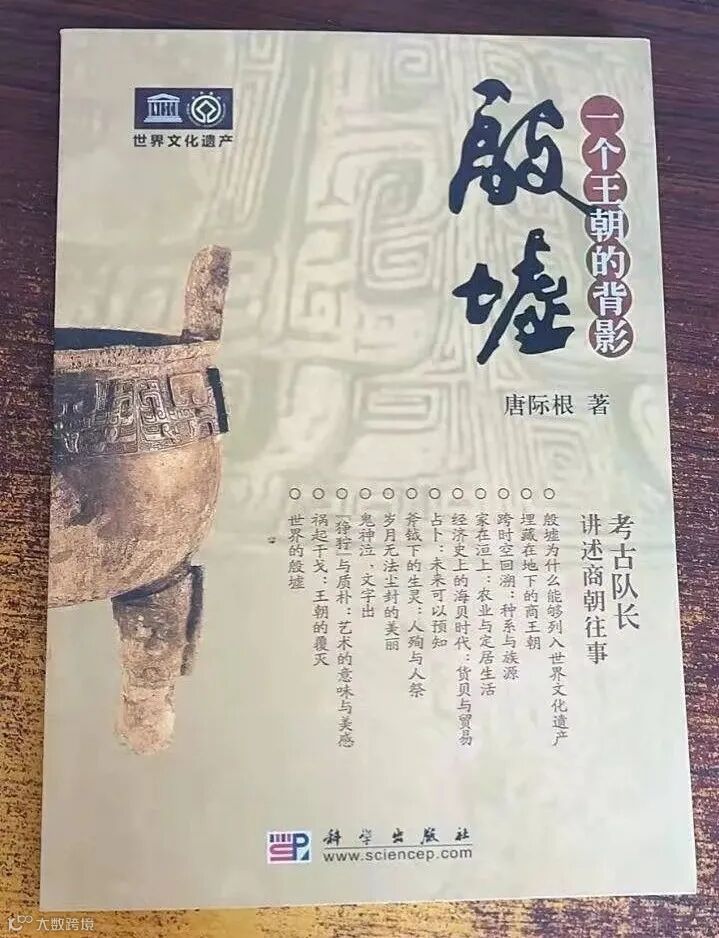 UNESCO
世界文化遗产
殷墟
一个王朝的背影
唐际根 著
考古队长
讲述商朝往事
○ 殷墟为什么能够列入世界文化遗产
○ 埋藏在地下的商王朝
○ 跨时空回溯：种系与族源
○ 家在洹上：农业与定居生活
○ 经济史上的海贝时代：货贝与贸易
○ 占卜：未来可以预知
○ 斧钺下的生灵：人殉与人祭
○ 岁月无法尘封的美丽
○ 鬼神泣、文字出
○ “狰狞”与质朴：艺术的意味与美感
○ 祸起干戈：王朝的覆灭
○ 世界的殷墟
SP
科学出版社
www.sciencep.com
大数跨境